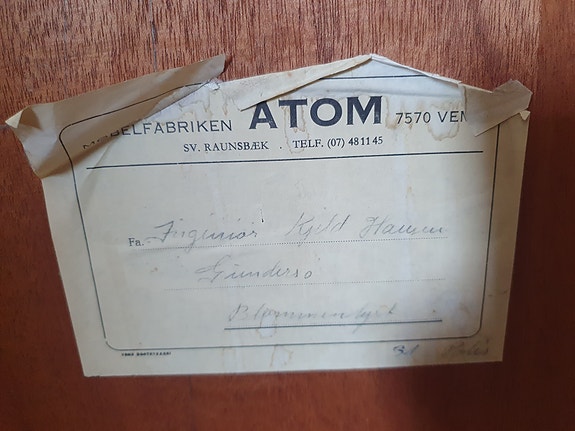 MØBELFABRIKEN ATOM 7570 VEM
SV. RAUNSBÆK . TELF. (07) 48 11 45
Fa. Ingeniør Kjeld Hansen
Gundersø